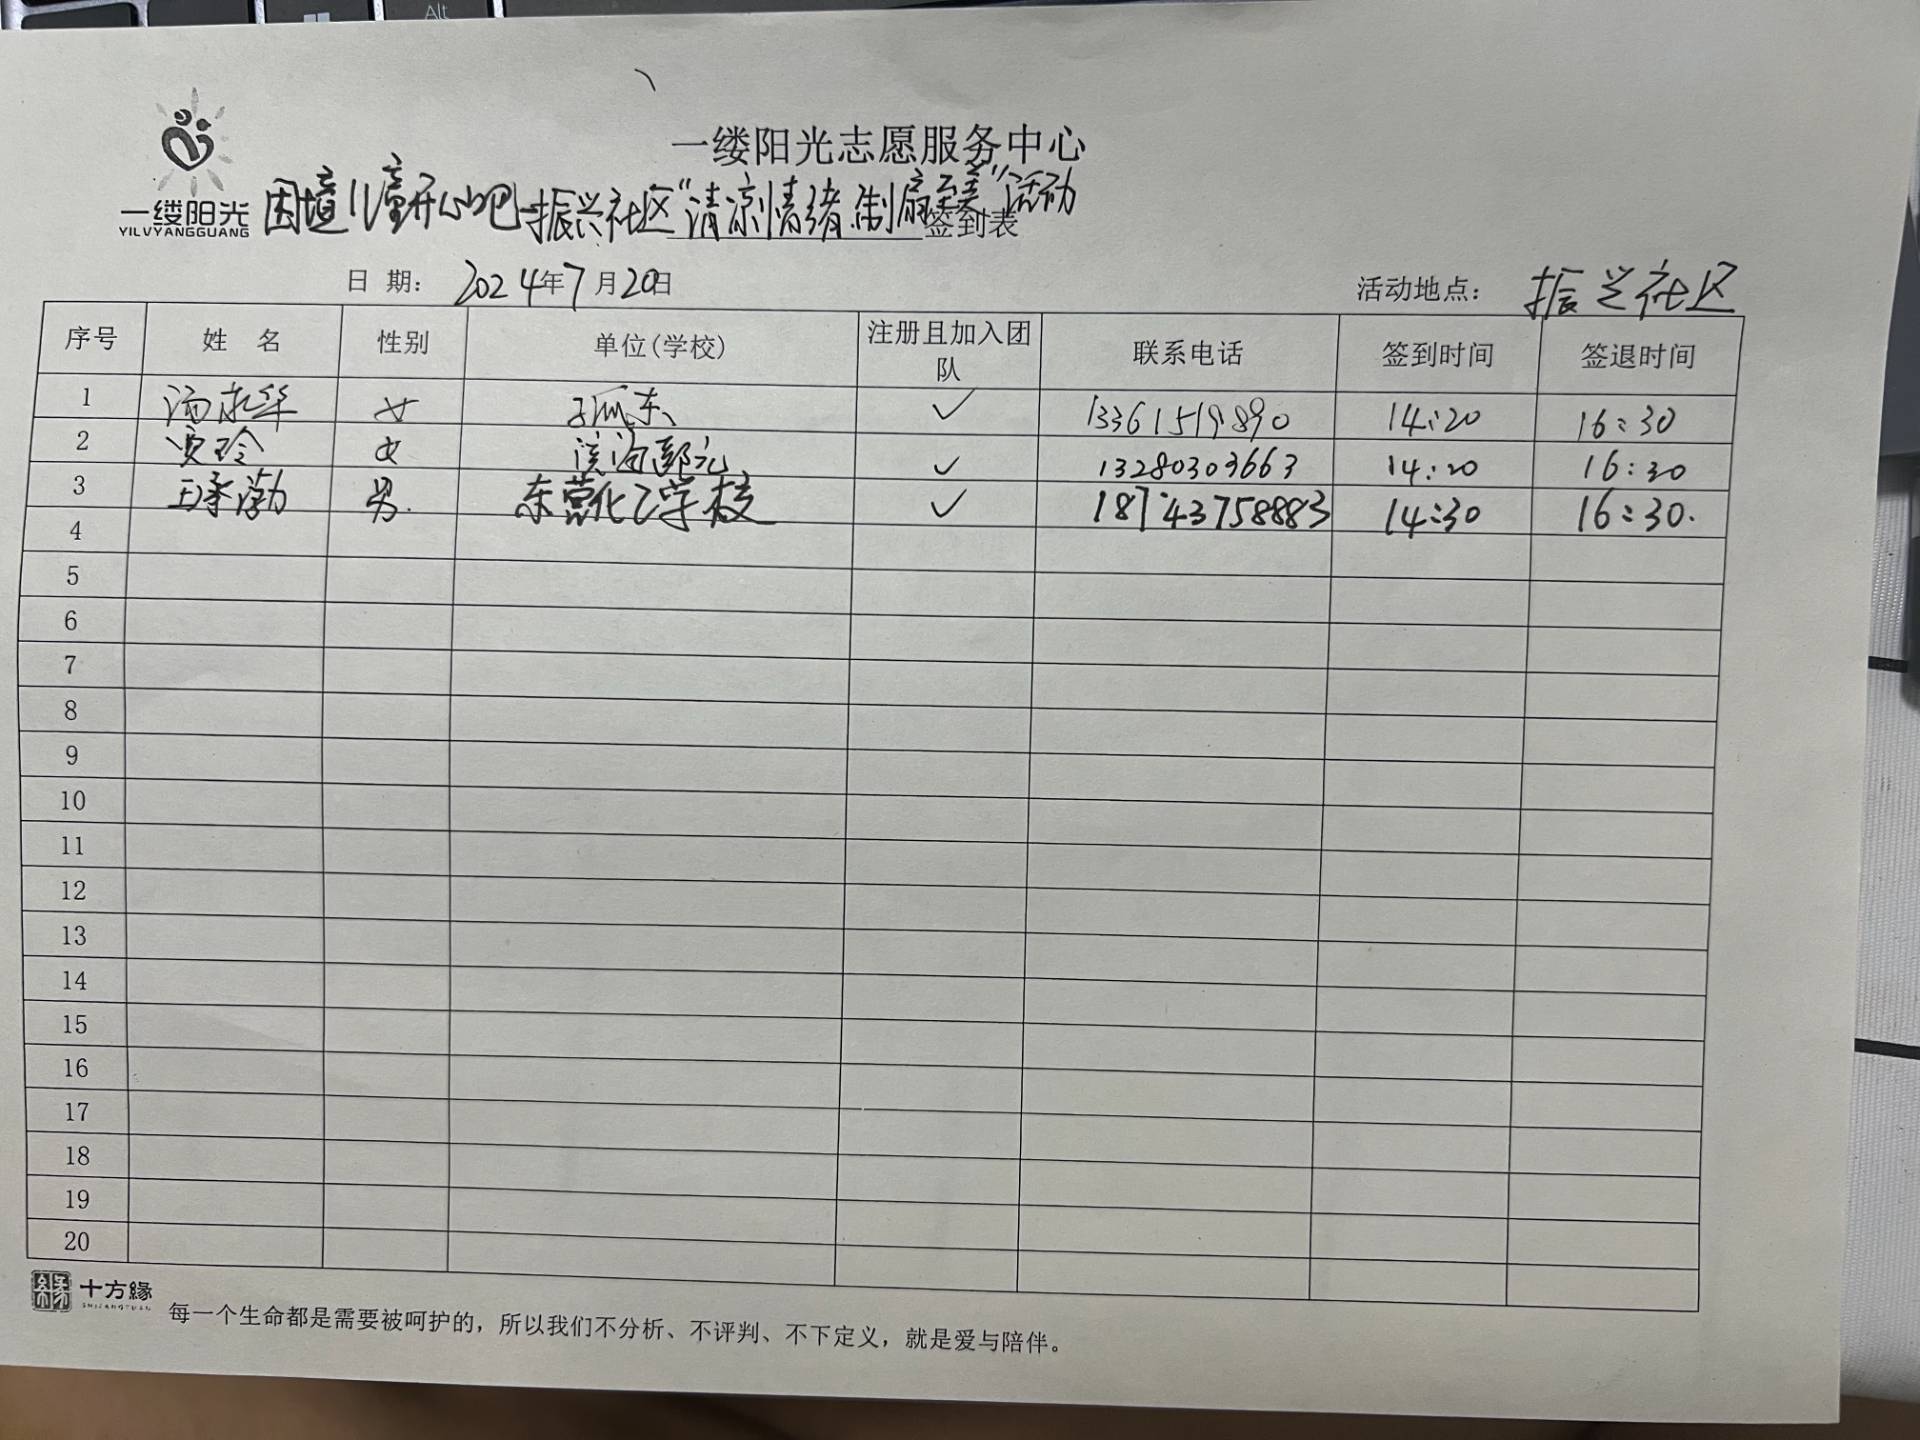 Alt
一缕阳光志愿服务中心
一缕阳光
YILVYANGGUANG
困境儿童开心吧-振兴社区“清凉情绪.制扇至美”活动
签到表
日 期: 2024年7月20日 活动地点: 振兴社区
序号 姓 名 性别 单位(学校) 注册且加入团队 联系电话 签到时间 签退时间
1 女 孤东 13361519890 14:20 16:30
2 女 13280303663 14:20 16:30
3 男. 东营化工学校 18743758883 14:30 16:30.
4
5
6
7
8
9
10
11
12
13
14
15
16
17
18
19
20
十方緣
每一个生命都是需要被呵护的，所以我们不分析、不评判、不下定义，就是爱与陪伴。